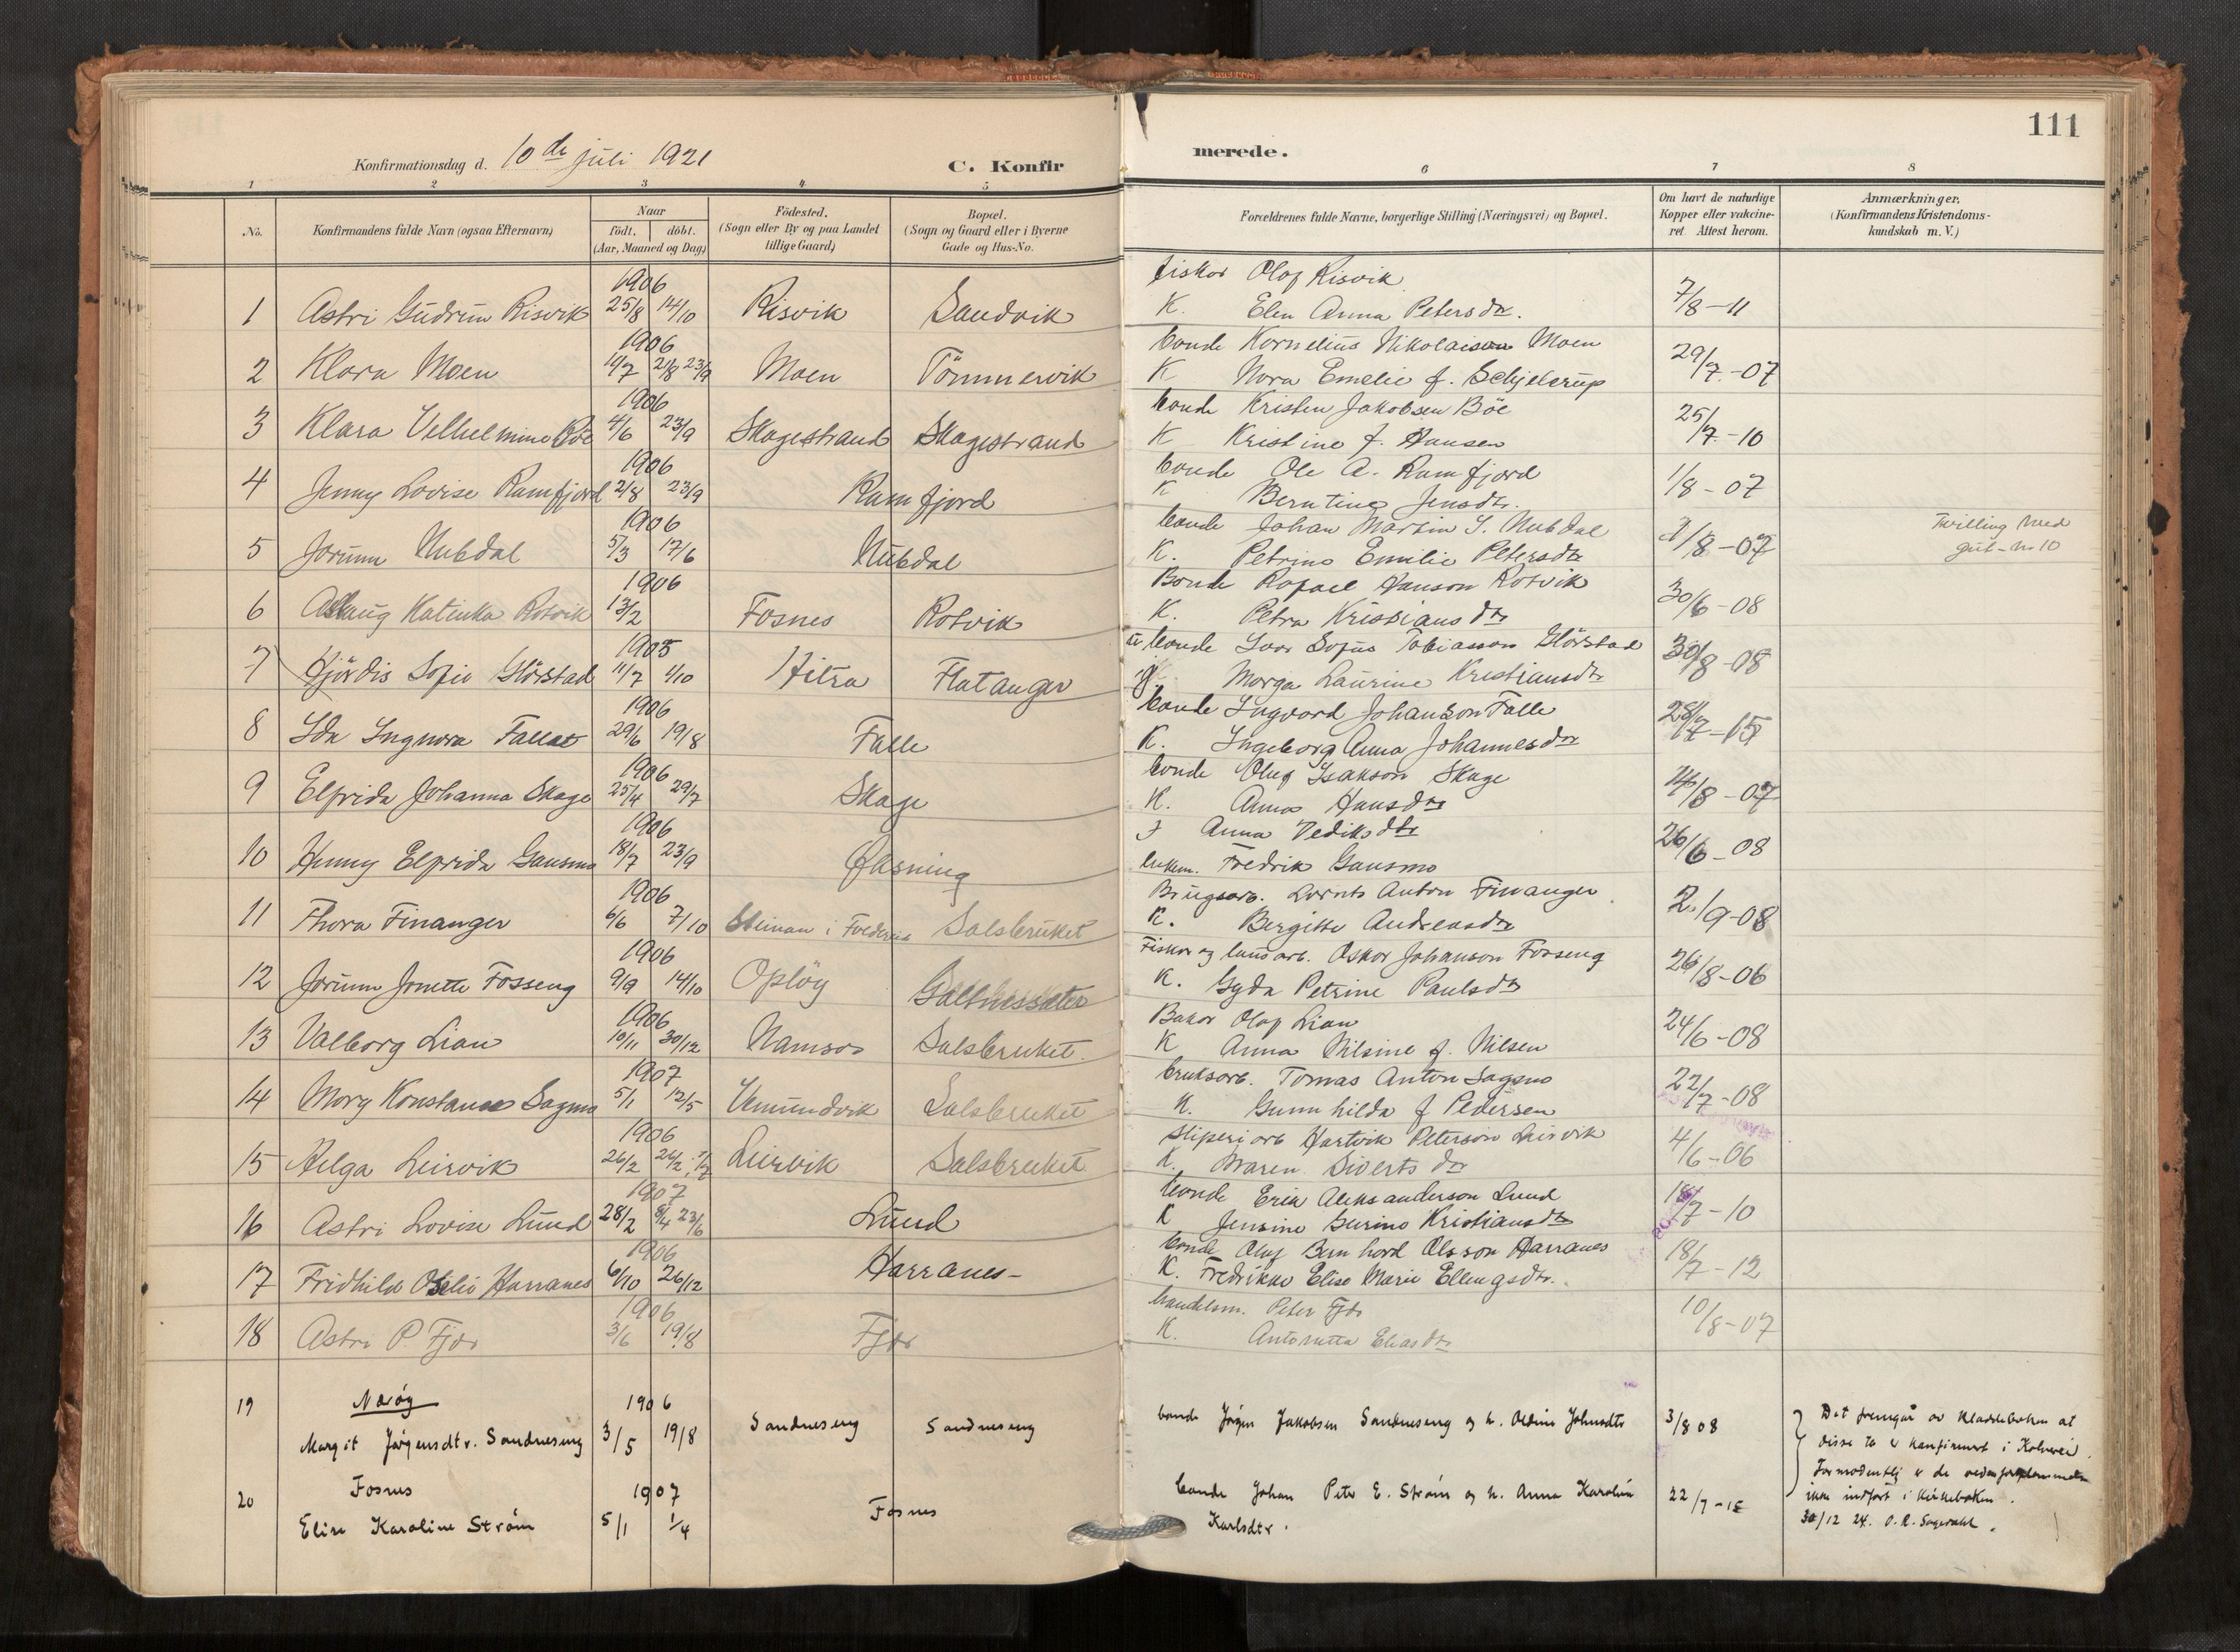 111
Konfirmationsdag d. 10de juli 1921
C. Konfir
merede.
1 2 3 4 5 6 7 8
No.
Konfirmandens fulde Navn (ogsaa Efternavn)
Naar
födt. döbt.
(Aar, Maaned og Dag)
Födested.
(Sogn eller By og paa Landet
tillige Gaard)
Bopæl.
(Sogn og Gaard eller i Byerne
Gade og Hus-No.
Forældrenes fulde Navne, borgerlige Stilling (Næringsvei) og Bopæl.
Om havt de naturlige
Kopper eller vakcine-
ret Attest herom.
Anmærkninger,
(Konfirmandens Kristendoms-
kundskab m. V.)
1906 fisker Olaf Risvik
1 Astri Gudrun Risvik 25/8 14/10 Risvik Sandvik K. Elen Anna Petersdtr. 7/8-11
1906 bonde Kornelius Nikolaisen Moen
2 Klara Moen 10/7 21/8 23/9 Moen Tömmervik K Nora Emelie f. Schjelerup 29/7-07
1906 bonde Kristen Jakobsen Böe
3 Klara Velhelmine Böe 4/6 23/9 Skagestrand Skagestrand K Kristine f. Hansen 25/7-10
1906 bonde Ole A. Ramfjord
4 Jenny Lovise Ramfjord 2/8 23/9 Ramfjord K Berntine Jensdtr. 1/8-07
1906 bonde Johan Martin S. Nubdal
5 Jorunn Nubdal 5/3 17/6 Nubdal K. Petrine Emilie Petersdtr /8-07 Tvilling med
gut-nr 10
1906 Bonde Rafael Hanson Rotvik
6 Aslaug Katinka Rotvik 13/2 Fosnes Rotvik K. Petra Kristiansdtr 30/6-08
1905 bonde Ivar Sofus Tobiasson Glörstad
7 Hjördis Sofie Glörstad 11/7 1/10 Hitra Flatanger Marga Laurine Kristiansdtr 30/8-08
1906 bonde Ingvard Johanson Falle
8 Ida Ingnora Fallat 29/6 19/8 Falle K. Ingeborg Anna Johannesdtr 28/7-15
1906 bonde Oluf Isakson Skage
9 Elfrida Johanna Skage 25/4 29/7 Skage K. Anna Hansdtr /8-07
1906 F Anna Vediksdtr
10 Henny Elfrida Gansmo 18/7 23/9 Fredrik Gansmo 26/6-08
1906 Brugsarb. Lornts Anton Finanger
11 Thora Finanger 6/6 7/10 Steinan i Salsbruket K. Bergitte Andreasdtr 2/9-08
1906 Fisker og arb. Oskar Johanson Fosseng
12 Jorunn Jonette Fosseng 9/9 14/10 Oplöy K. Gyda Petrine Paulsdtr 26/8-06
1906 Baker Olaf Lian
13 Valborg Lian 10/11 30/12 Namsos Salsbruket. K Anna Nilsine f. Nilsen 24/6-08
1907 bruksarb. Tomas Anton Sagmo
14 Mary Konstanse Sagmo 5/1 12/5 Vemundvik Salsbruket K. Gunnhilda f Pedersen 22/7-08
1906 Sliperiarb Hartvik Peterson Leirvik
15 Helga Leirvik 26/2 Leirvik Salsbruket K. Maren Sivertsdtr 4/6-06
1907 bonde Erik Aleksanderson Lund
16 Astri Lovise Lund 28/2 8/4 23/6 Lund K Jensine Gurine Kristiansdtr 18/7-10
1906 bonde Oluf Bernhard Olsson Harranes
17 Fridhild Oselie Harranes 6/10 26/12 Harranes- K. Fredrikke Elise Marie Ellingsdtr. 18/7-12
1906 handelsm. Peter Fjær
18 Astri P. Fjær 3/6 19/8 Fjær K. Antonetta Eliasdtr 10/8-07
19 Næröy 1906 Sandneseng Sandneseng bonde Jörgen Jakobsen Sandneseng og h. Oldine Johnsdtr 3/8 08
Margit Jörgensdtr. Sandneseng 3/5 19/8
Det fremgår av kladdeboken at
disse to er konfirmert i Kolvereid.
Formodentlig er de
ikke indfört i kirkeboken.
30/12 24.
20 Fosnes 1907 Fosnes bonde Johan Peter E. Ström og h. Anna Karolin 22/7-15
Elise Karoline Ström 5/1 1/4 Karlsdtr.